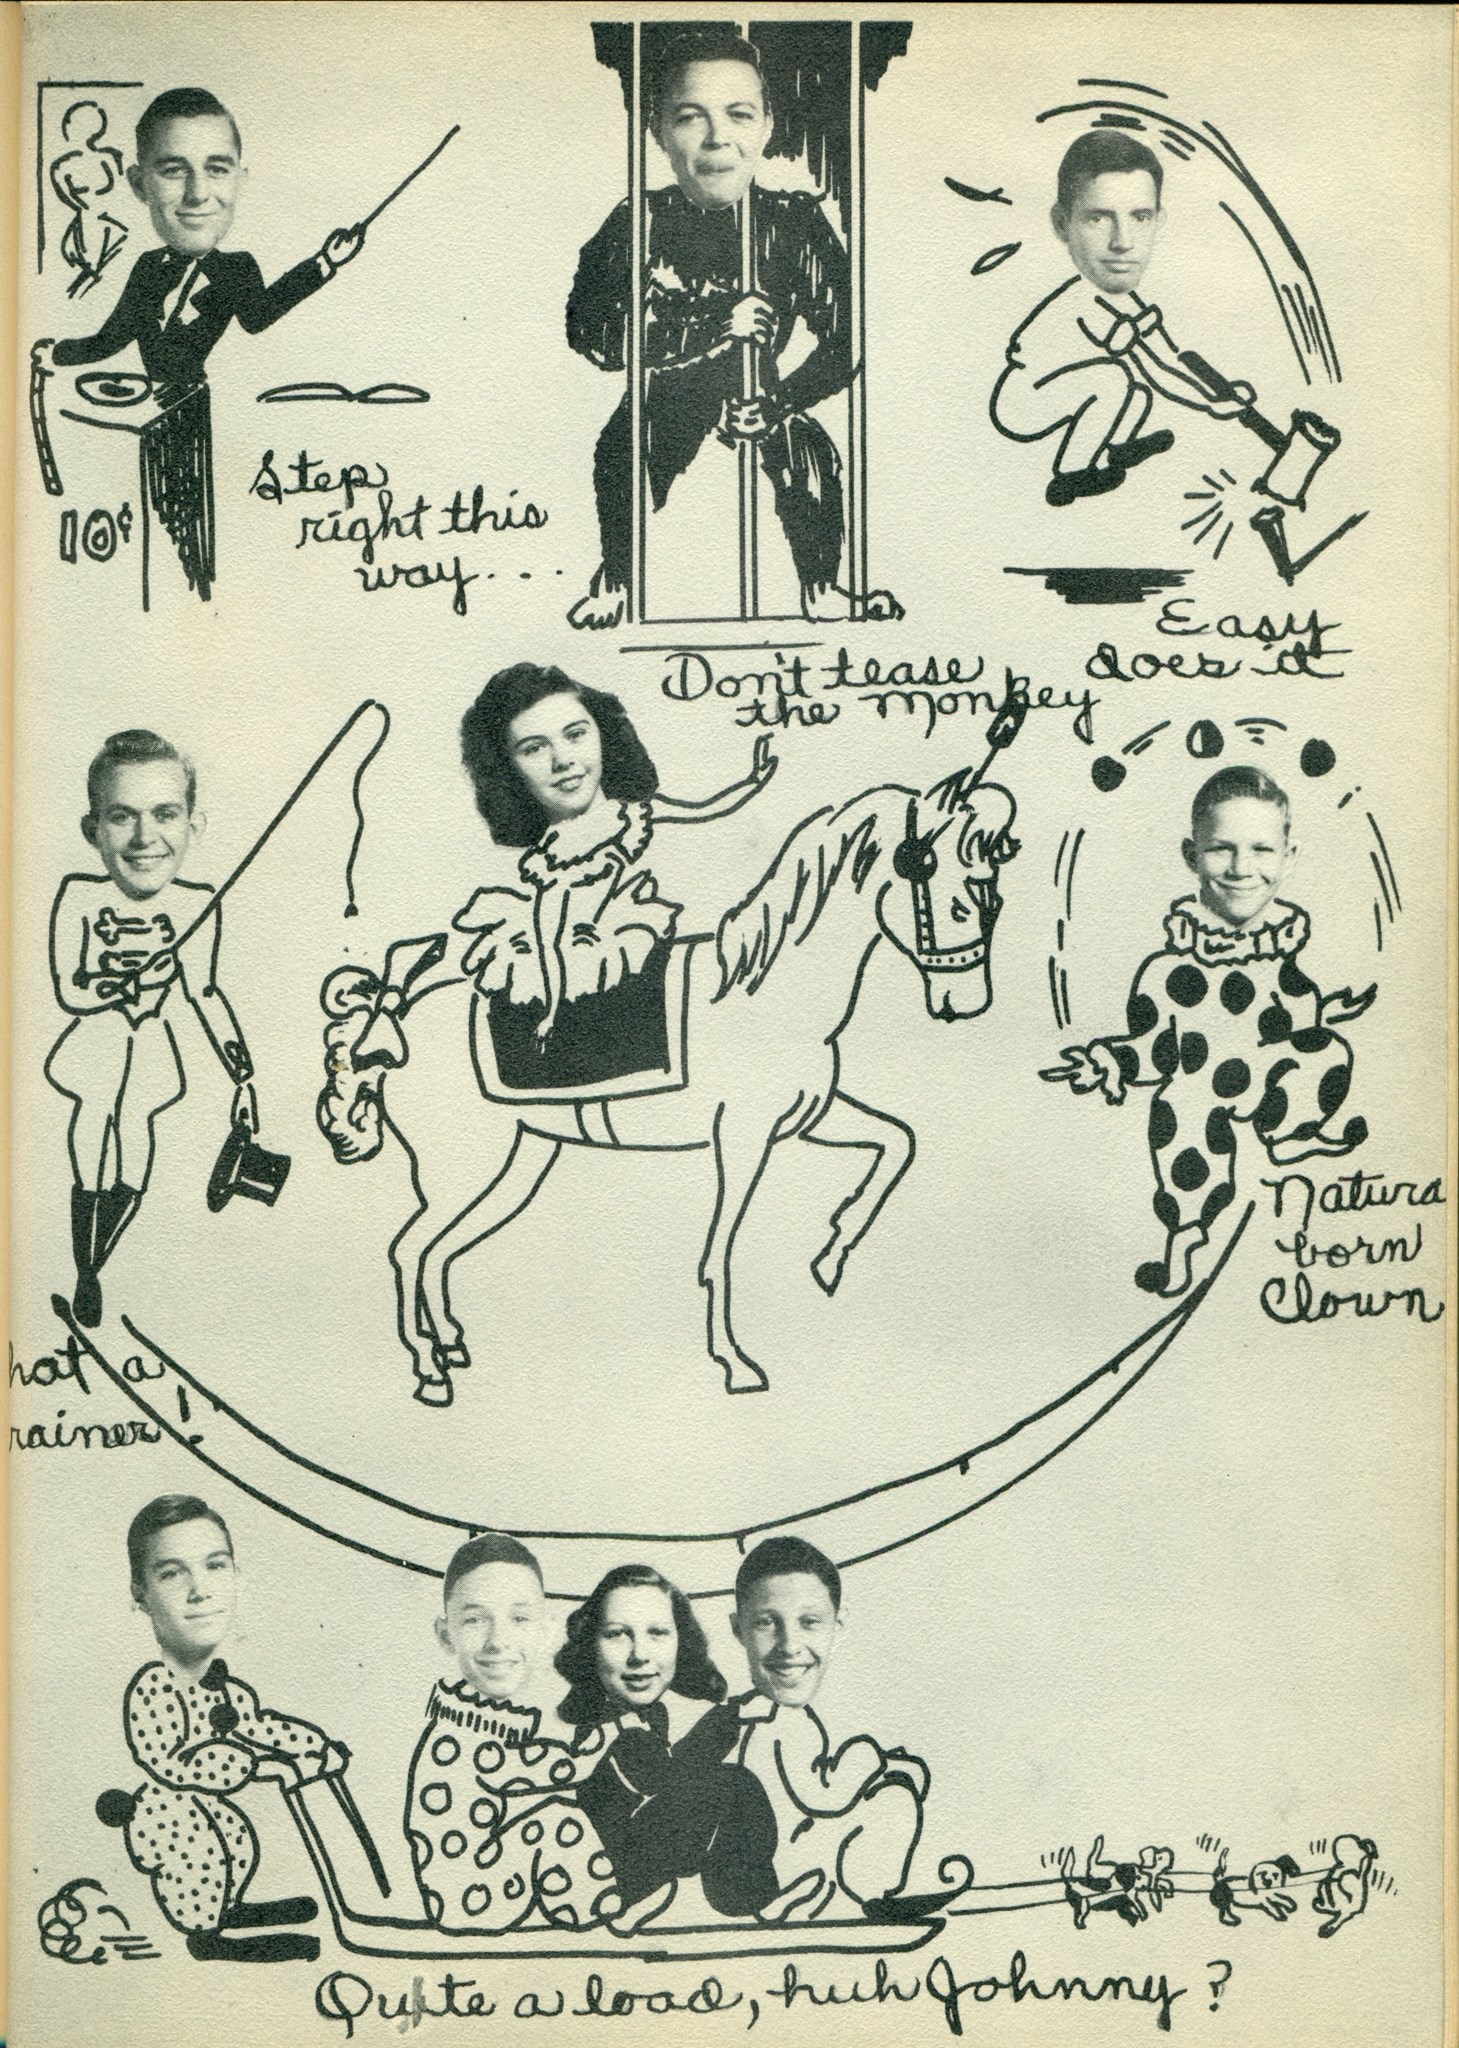 10¢
Step
right this
way...
Don't tease
the monkey
Easy
does it
Natura
born
Clown
hat a
rainer!
Quite a load, huh Johnny?